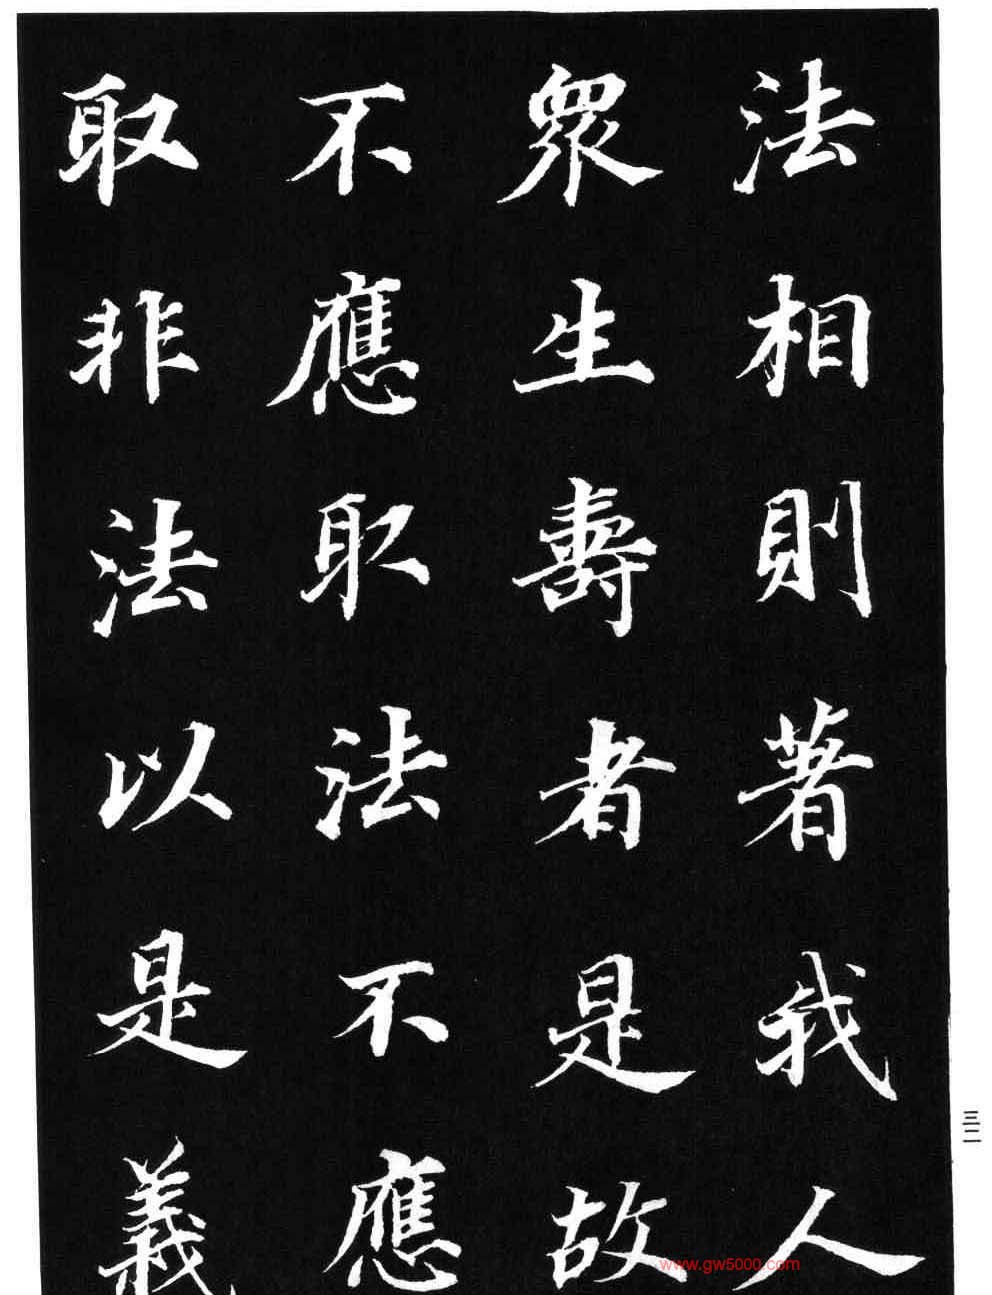 法相則著我人
衆生壽者是故
不應取法不應
取非法以是義
三二
www.gw5000.com